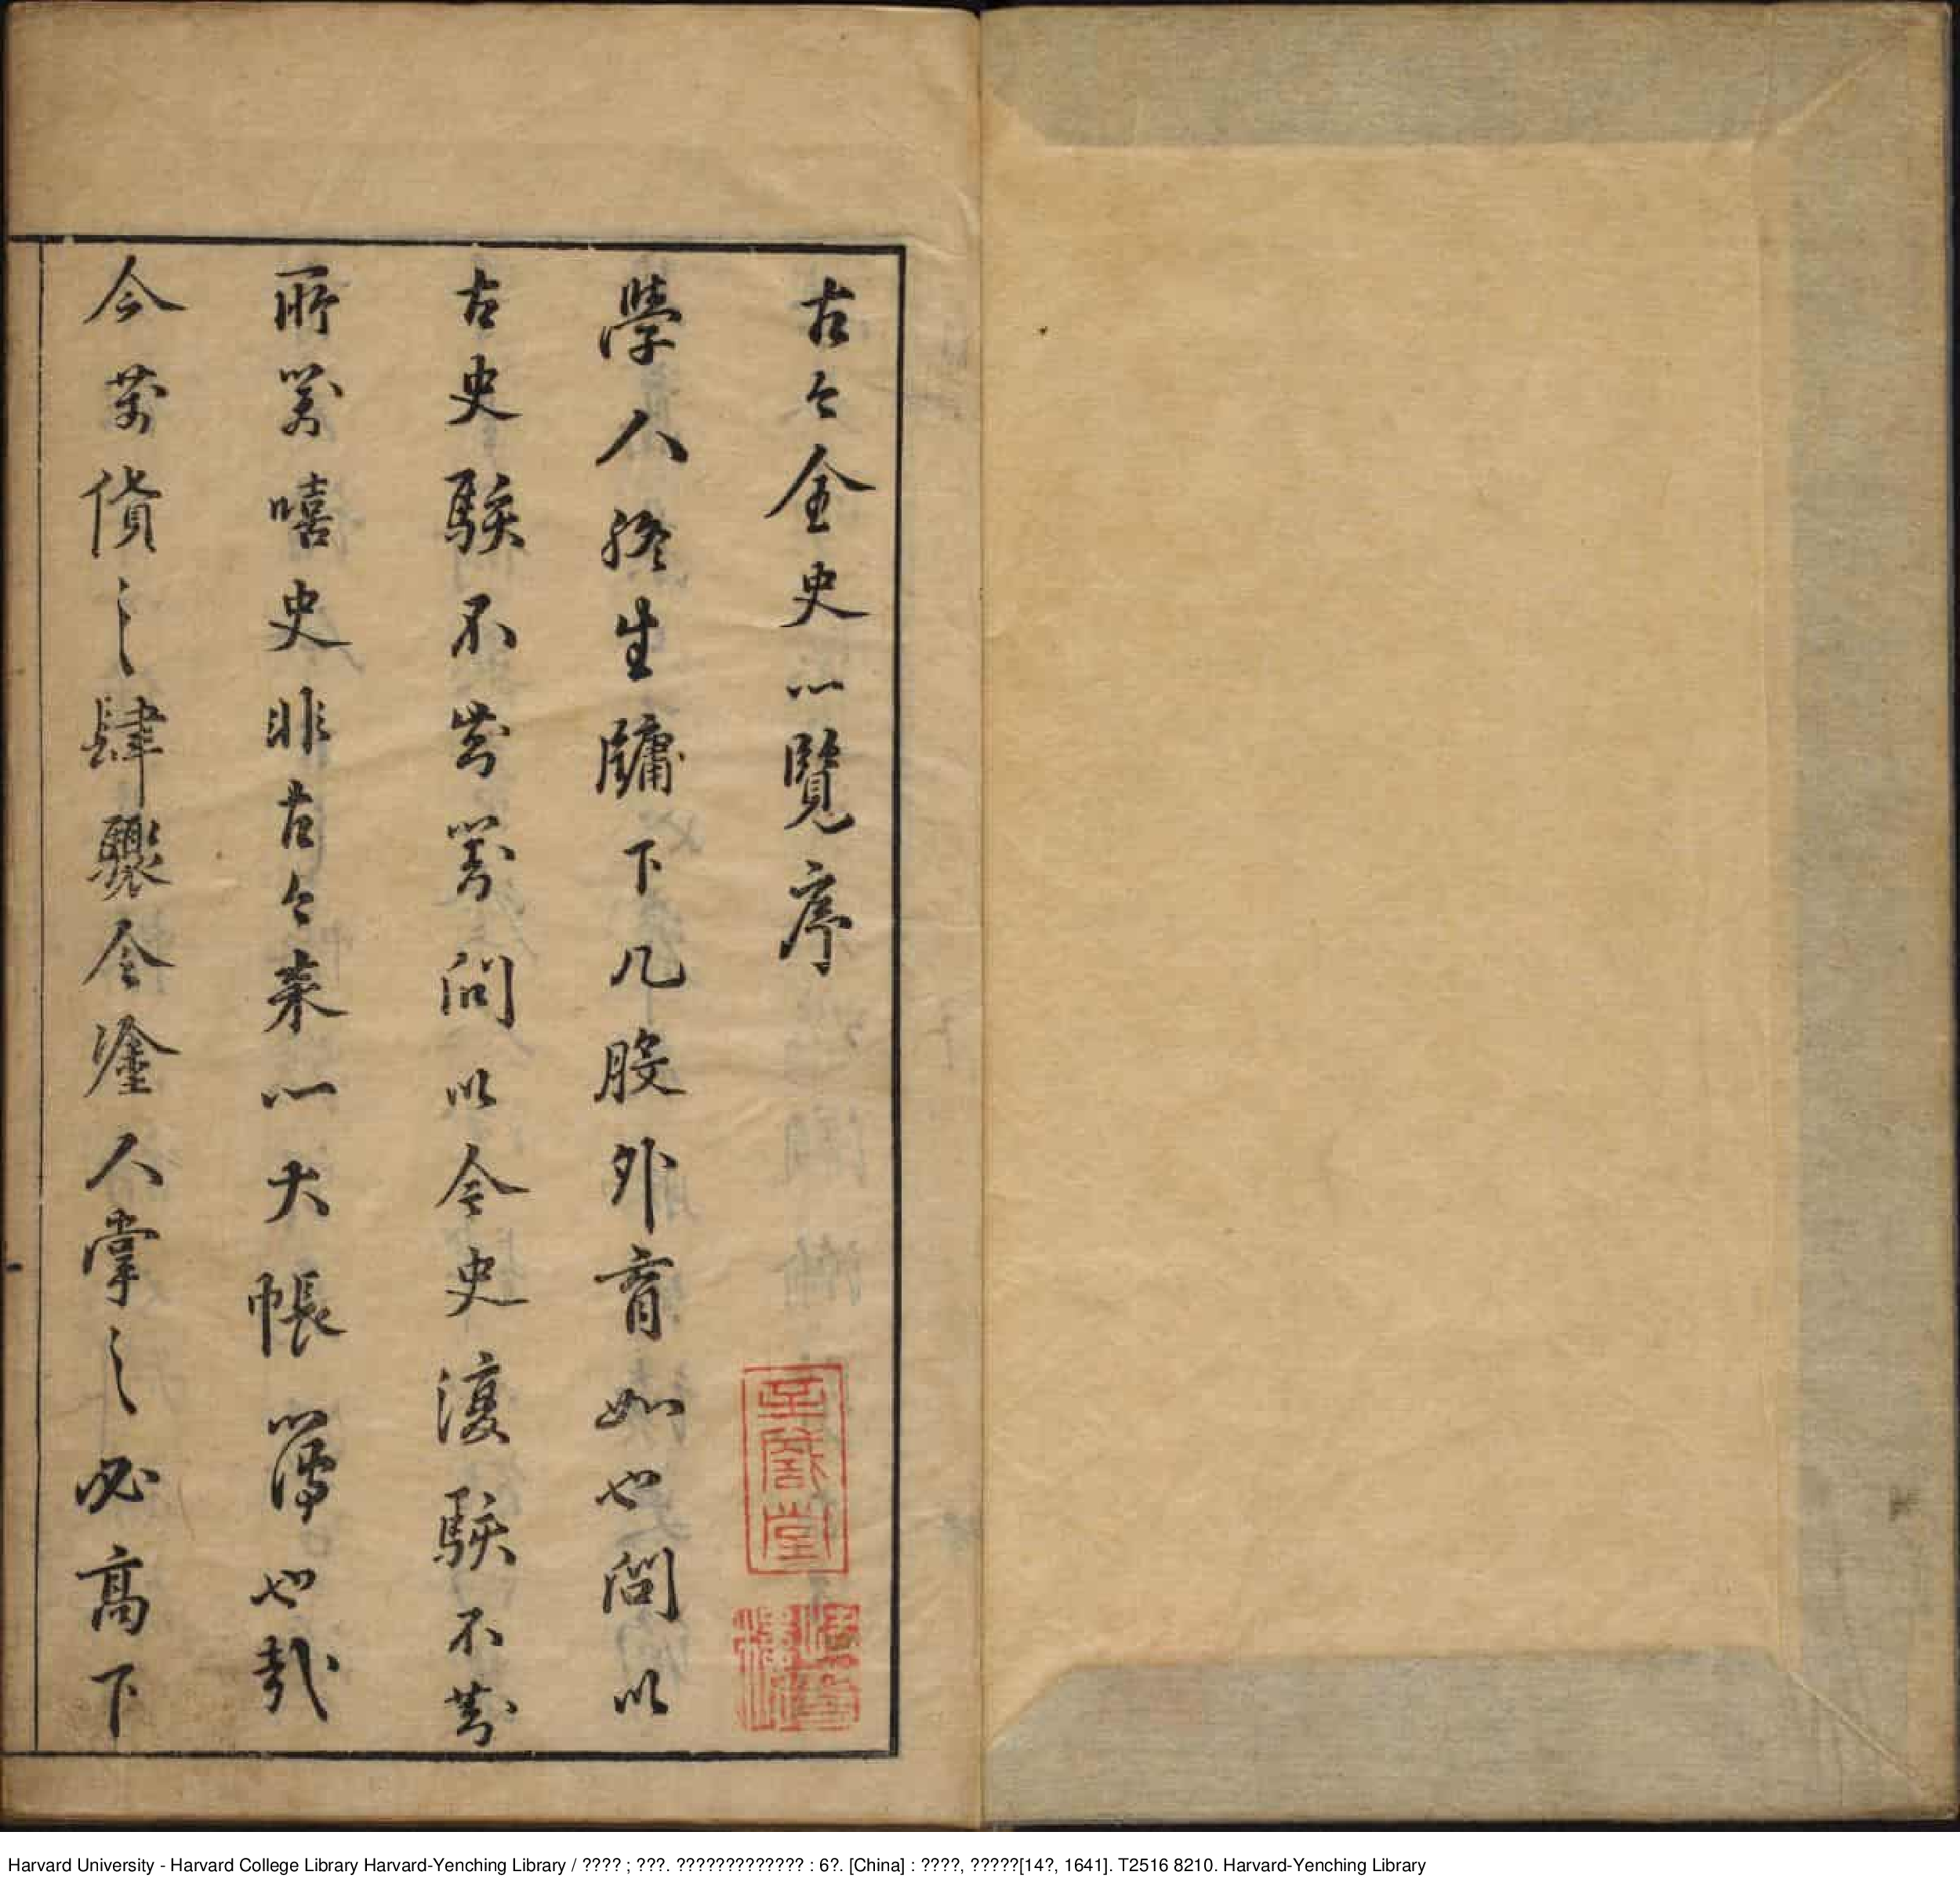 古今全史一覽序
學人終生牖下八股外盲如也問以
古史駭不對問以今史復駭不
所對嘻史非古今來一大帳簿也哉
今萬貨之肆驟令塗人掌之必高下
Harvard University - Harvard College Library Harvard-Yenching Library / ???? ; ???. ????????????? : 6?. [China] : ????, ?????[14?, 1641]. T2516 8210. Harvard-Yenching Library